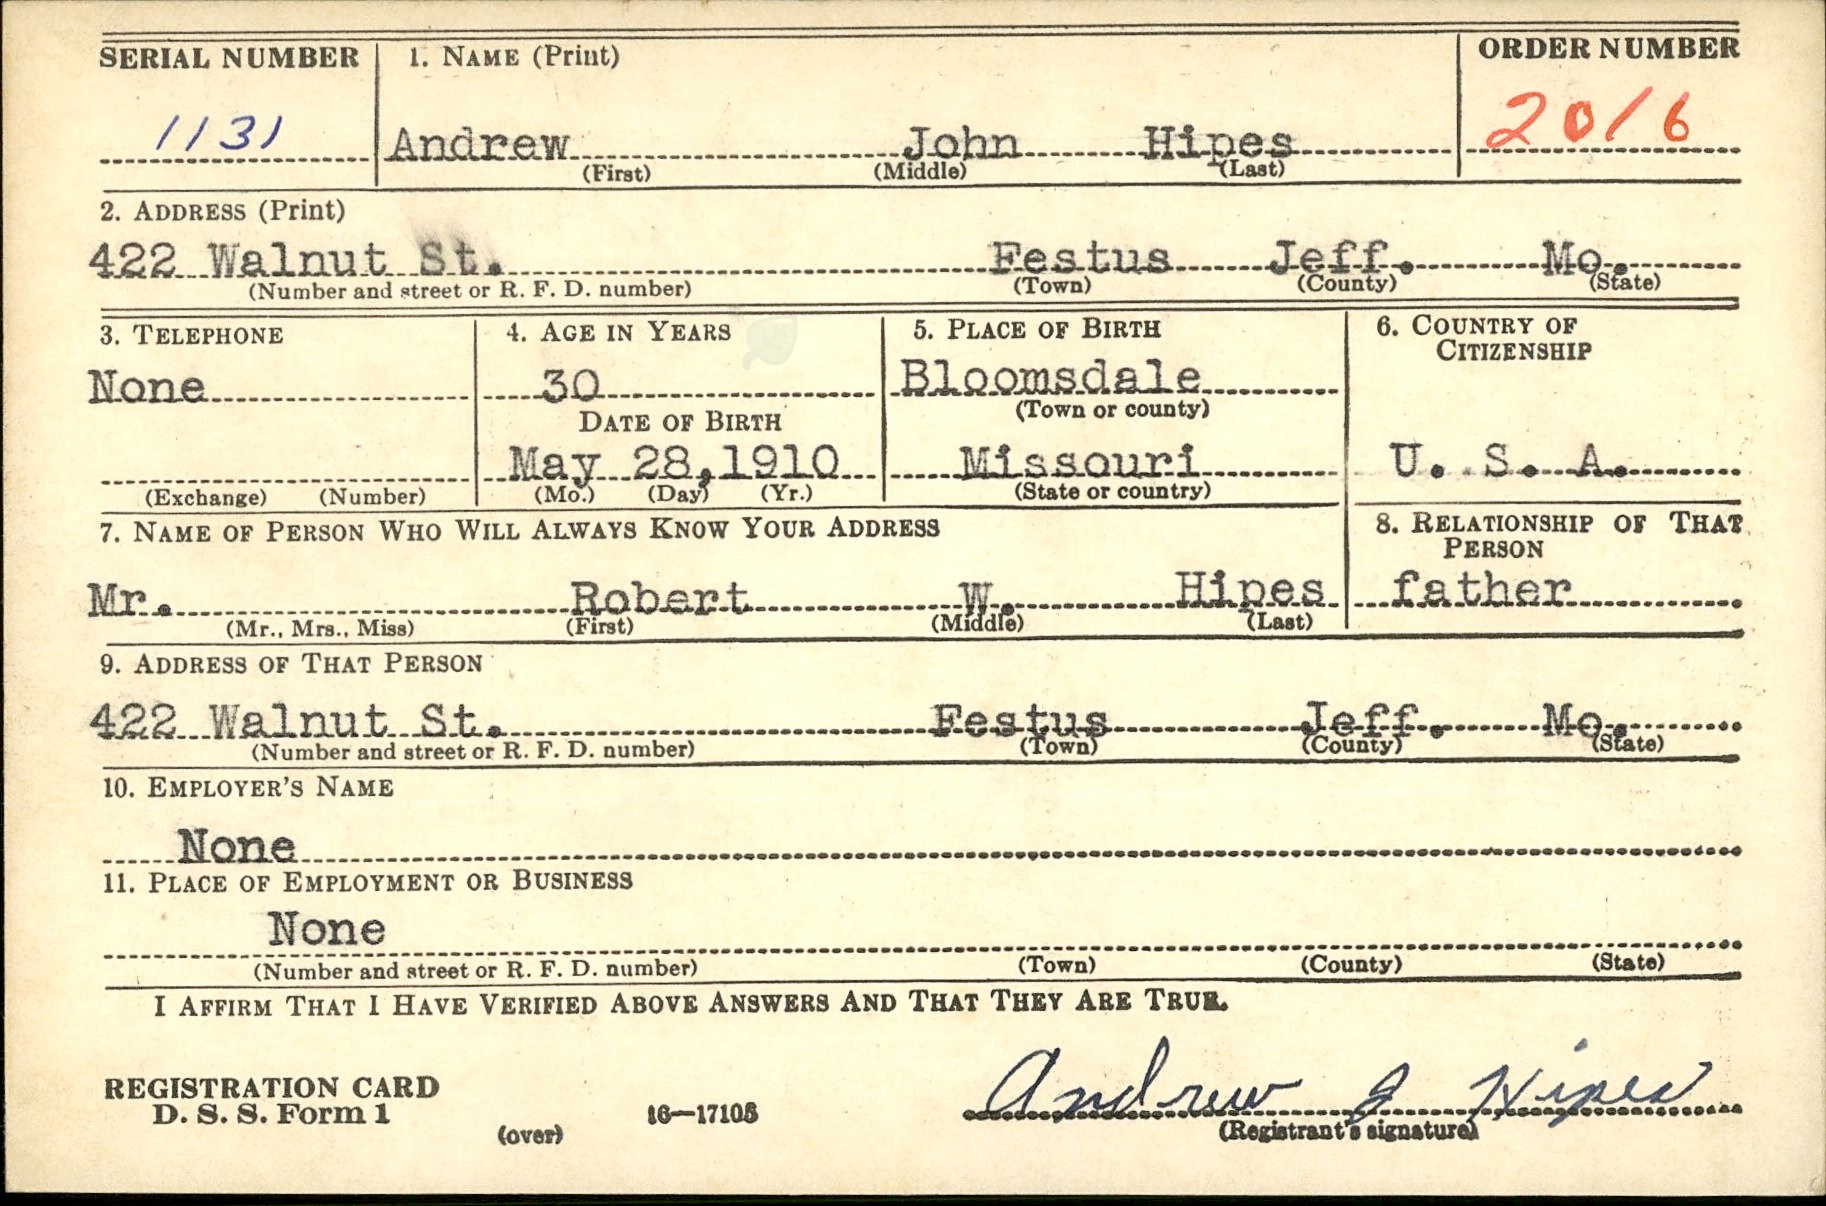 SERIAL NUMBER 1. NAME (Print) ORDER NUMBER
1131 Andrew John Hipes 2016
(First) (Middle) (Last)
2. ADDRESS (Print)
422 Walnut St. Festus Jeff. Mo.
(Number and street or R. F. D. number) (Town) (County) (State)
3. TELEPHONE 4. AGE IN YEARS 5. PLACE OF BIRTH 6. COUNTRY OF
CITIZENSHIP
None 30 Bloomsdale
DATE OF BIRTH (Town or county)
May 28,1910 Missouri U. S. A.
(Exchange) (Number) (Mo.) (Day) (Yr.) (State or country)
7. NAME OF PERSON WHO WILL ALWAYS KNOW YOUR ADDRESS 8. RELATIONSHIP OF THAT
PERSON
Mr. Robert W. Hipes father
(Mr., Mrs., Miss) (First) (Middle) (Last)
9. ADDRESS OF THAT PERSON
422 Walnut St. Festus Jeff. Mo.
(Number and street or R. F. D. number) (Town) (County) (State)
10. EMPLOYER'S NAME
None
11. PLACE OF EMPLOYMENT OR BUSINESS
None
(Number and street or R. F. D. number) (Town) (County) (State)
I AFFIRM THAT I HAVE VERIFIED ABOVE ANSWERS AND THAT THEY ARE TRUE.
REGISTRATION CARD
D. S. S. Form 1 16—17105 Andrew J Hipes
(over) (Registrant's signature)